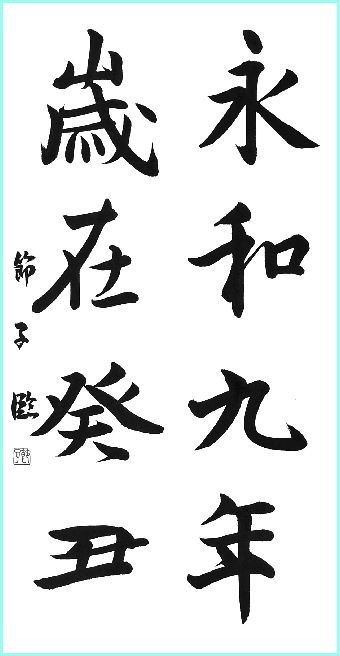 永和九年
歳在癸丑
節子臨